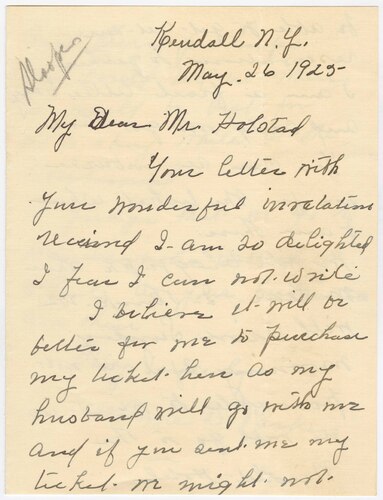 Sloopers
Kendall N.Y.
May. 26 1925-
My Dear Mr. Holstad
Your letter with
your wonderful invatation
recieved I am so delighted
I fear I can not write
I believe it will be
better for me to purchase
my ticket here as my
husband will go with me
and if you sent me my
ticket we might not